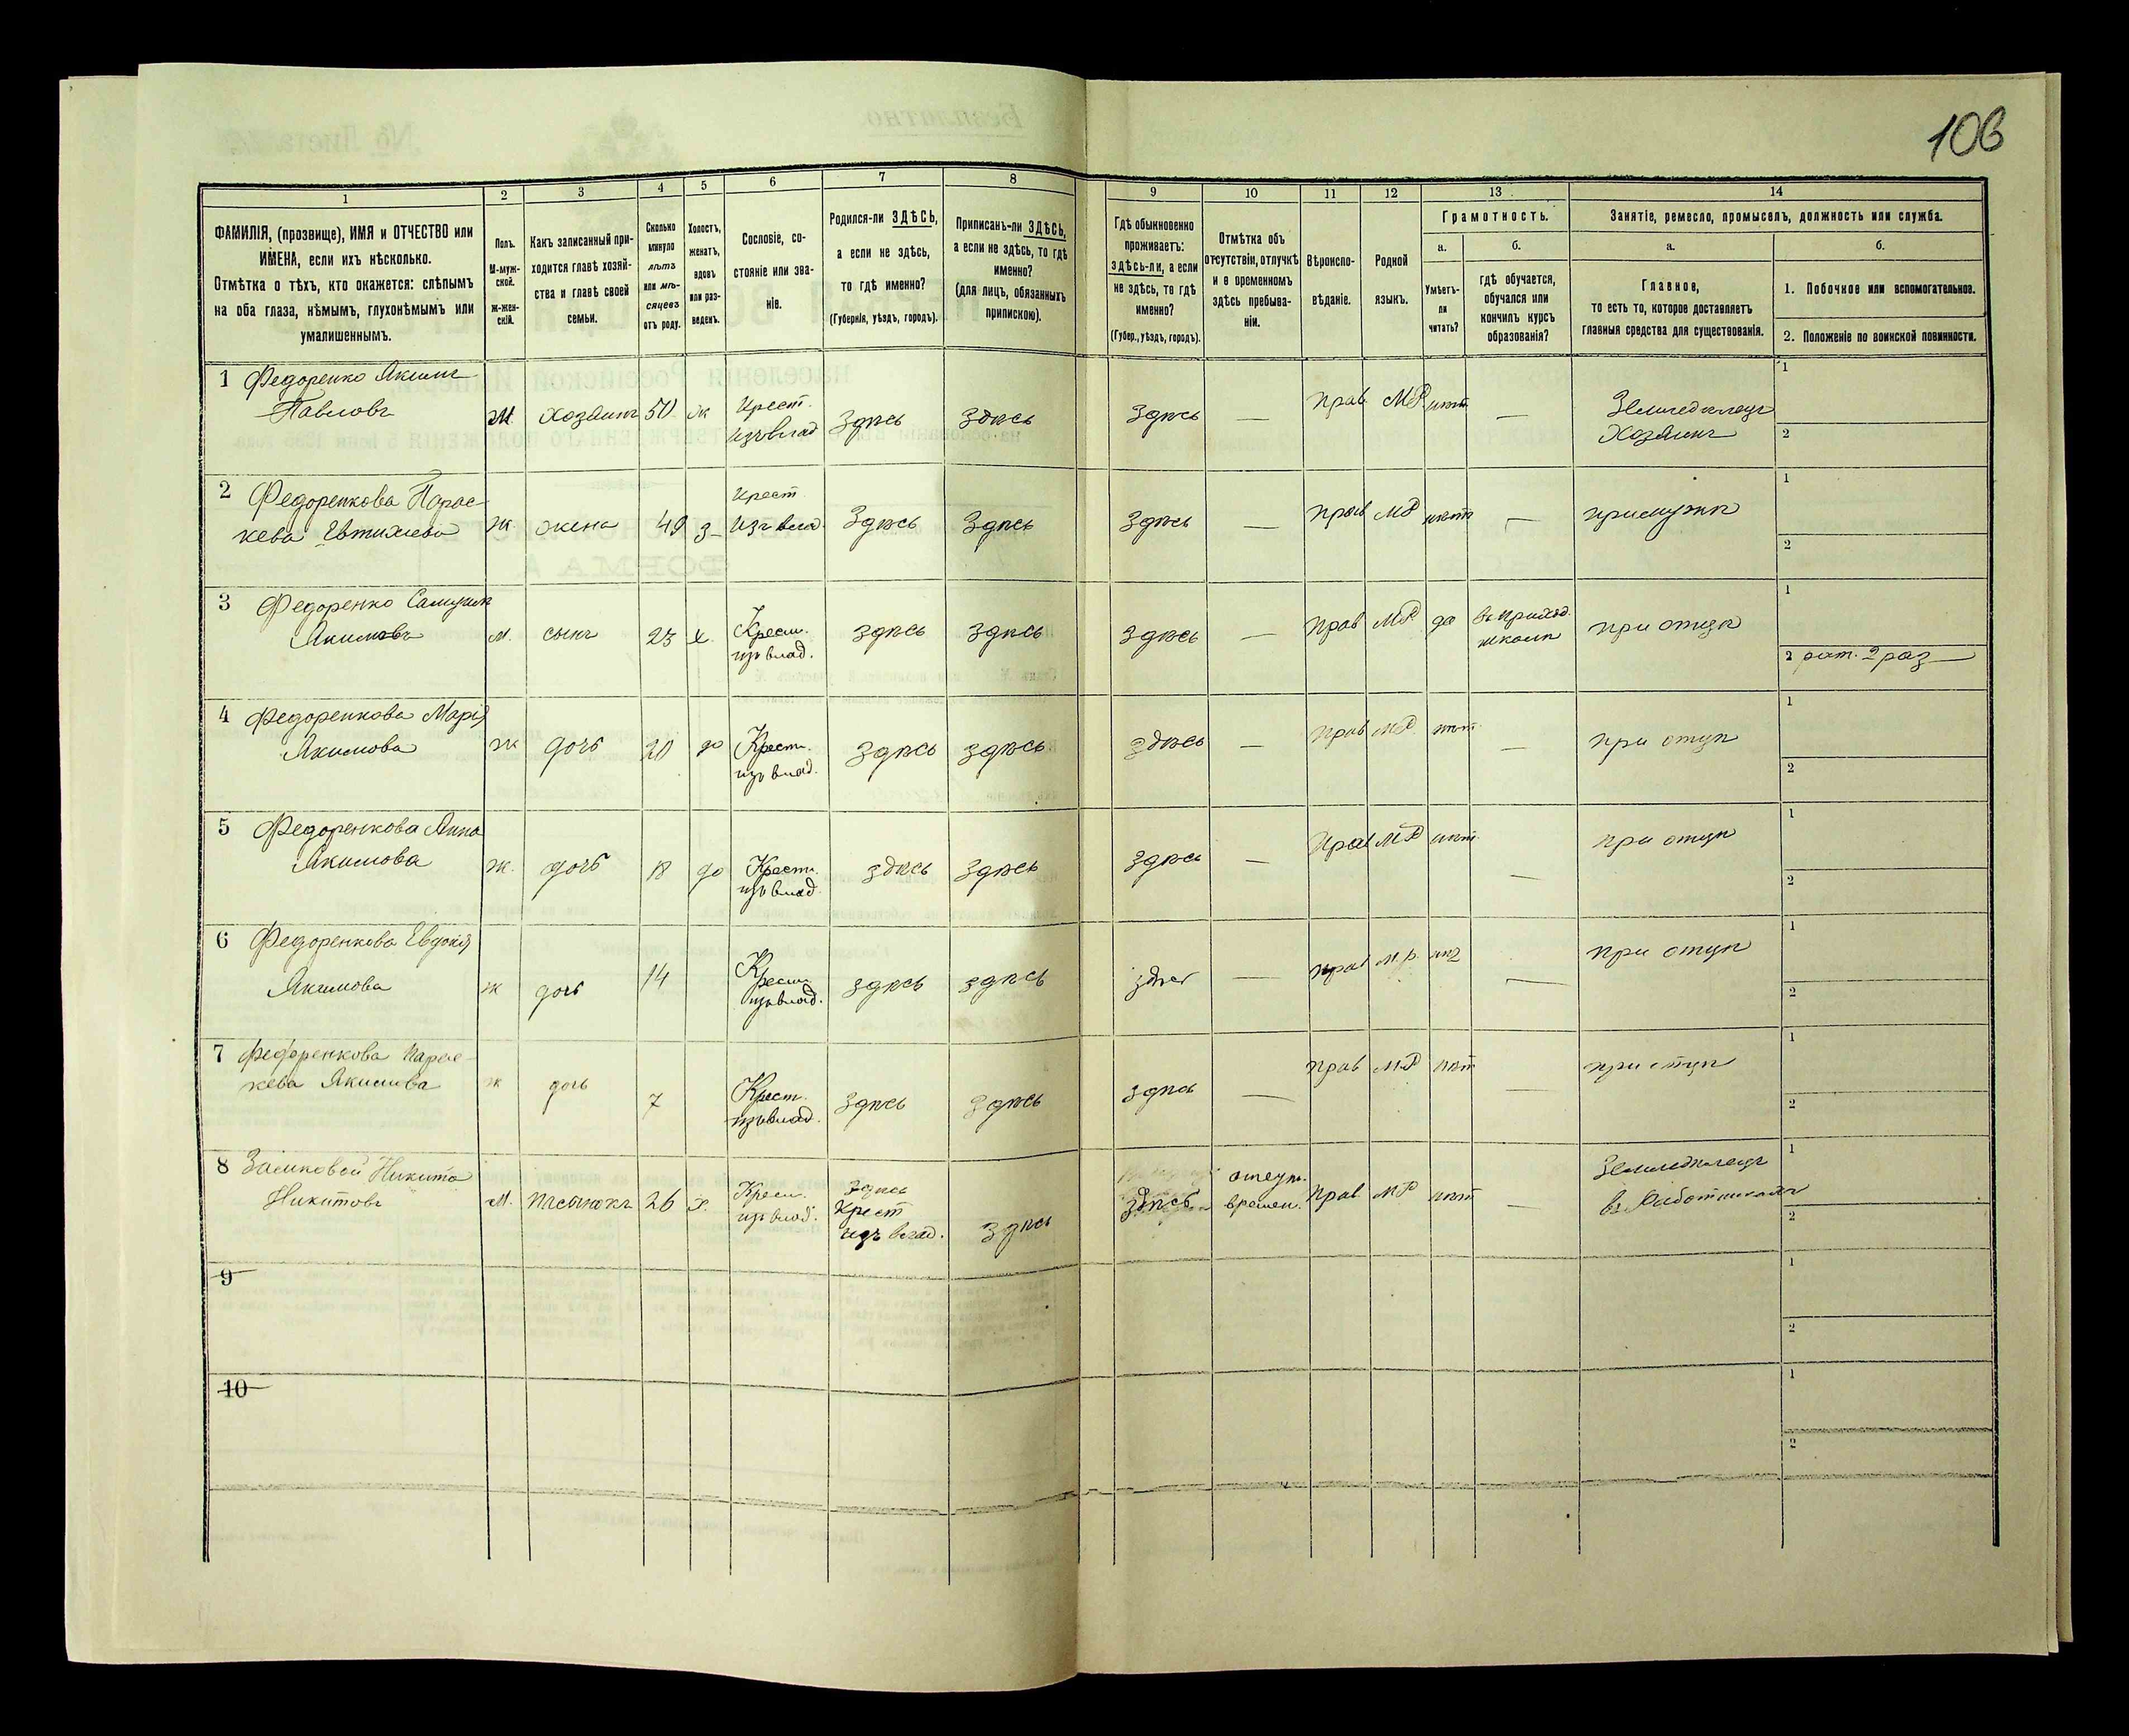 106
1
2
3
4
5
6
7
8
9
10
11
12
13
14
ФАМИЛІЯ, (прозвище), ИМЯ и ОТЧЕСТВО или
ИМЕНА, если ихъ нѣсколько.
Отмѣтка о тѣхъ, кто окажется: слѣпымъ
на оба глаза, нѣмымъ, глухонѣмымъ или
умалишеннымъ.
Полъ.
М-муж-
ской.
Ж-жен-
скій.
Какъ записанный при-
ходится главѣ хозяй-
ства и главѣ своей
семьи.
Сколько
минуло
лѣтъ
или мѣ-
сяцевъ
отъ роду.
Холостъ,
женатъ,
вдовъ
или раз-
веденъ.
Сословіе, со-
стояніе или зва-
ніе.
Родился-ли ЗДѢСЬ,
а если не здѣсь,
то гдѣ именно?
(Губернія, уѣздъ, городъ).
Приписанъ-ли ЗДѢСЬ,
а если не здѣсь, то гдѣ
именно?
(для лицъ, обязанныхъ
припискою).
Гдѣ обыкновенно
проживаетъ:
здѣсь-ли, а если
не здѣсь, то гдѣ
именно?
(Губер., уѣздъ, городъ).
Отмѣтка объ
отсутствіи, отлучкѣ
и о временномъ
здѣсь пребыва-
ніи.
Вѣроиспо-
вѣданіе.
Родной
языкъ.
Грамотность.
а.
Умѣетъ-
ли
читать?
б.
гдѣ обучается,
обучался или
кончилъ курсъ
образованія?
Занятіе, ремесло, промыселъ, должность или служба.
а.
Главное,
то есть то, которое доставляетъ
главныя средства для существованія.
б.
1. Побочное или вспомогательное.
2. Положеніе по воинской повинности.
1 Федоренко Якимъ
Павловъ
М. хозяинъ 50 ж Крест.
изъ влад здѣсь здѣсь здѣсь — прав МР нѣт — Земледѣлецъ
Хозяинъ
1
2
2 Федоренкова Парас-
кева Евтихіева
ж жена 49 з- Крест
изъ влад. здѣсь здѣсь здѣсь — прав МР нѣт — примужѣ
1
2
3 Федоренко Самуил
Якимовъ
м. сынъ 23 х. Крест.
изъ влад. здѣсь здѣсь здѣсь — прав МР да въ приход.
школѣ при отцѣ
1
2 рат. 2 раз —
4 Федоренкова Марія
Якимова
ж дочь 20 до Крест.
изъ влад. здѣсь здѣсь здѣсь — прав МР нѣт — при отцѣ
1
2
5 Федоренкова Анна
Якимова
ж. дочь 18 до Крест.
изъ влад. здѣсь здѣсь здѣсь — прав МР нѣт — при отцѣ
1
2
6 Федоренкова Евдокія
Якимова
ж дочь 14 Крест.
изъ влад. здѣсь здѣсь — прав м.р. — при отцѣ
1
2
7 Федоренкова Парас-
кева Якимова
ж дочь 7 Крест.
изъ влад. здѣсь здѣсь здѣсь — прав МР нѣт — при отцѣ
1
2
8 Никита
Никитовъ
М. 26 х. Крест.
изъ влад. здѣсь
крест
изъ влад. здѣсь здѣсь отсут.
времен. прав МР нѣт — Земледѣлецъ
въ работникахъ
1
2
9
1
2
10
1
2